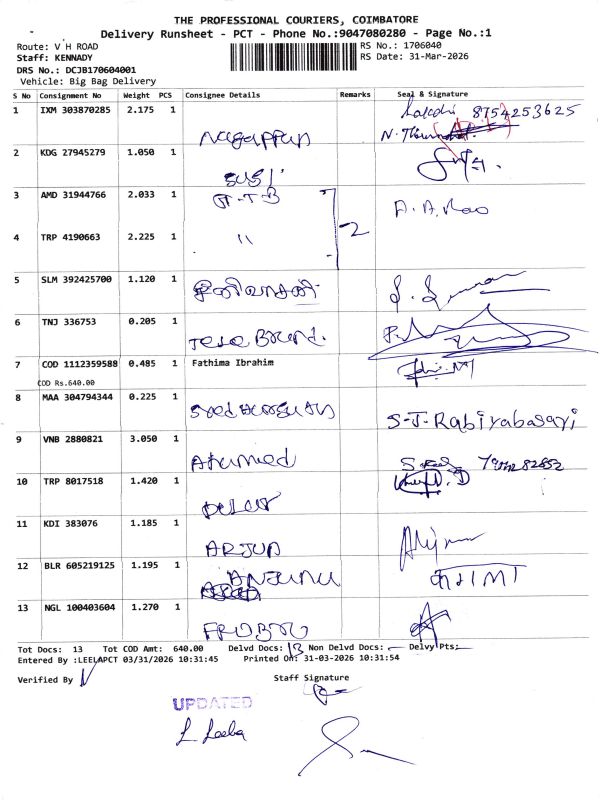 THE PROFESSIONAL COURIERS, COIMBATORE
Delivery Runsheet - PCT - Phone No.:9047080280 - Page No.:1
Route: V H ROAD
Staff: KENNADY
DRS No.: DCJB170604001
Vehicle: Big Bag Delivery
RS No.: 1706040
RS Date: 31-Mar-2026
S No Consignment No Weight PCS Consignee Details Remarks Seal & Signature
1 IXM 303870285 2.175 1 Nagappan 8754253625
2 KDG 27945279 1.050 1 SUSI
3 AMD 31944766 2.033 1 A.A. Rao
4 TRP 4190663 2.225 1 " 2
5 SLM 392425700 1.120 1
6 TNJ 336753 0.205 1
7 COD 1112359588 0.485 1 Fathima Ibrahim
COD Rs.640.00
8 MAA 304794344 0.225 1 S-J-Rabiyabasari
9 VNB 2880821 3.050 1 Ahamed
10 TRP 8017518 1.420 1
11 KDI 383076 1.185 1 ARJUN
12 BLR 605219125 1.195 1
13 NGL 100403604 1.270 1
Tot Docs: 13 Tot COD Amt: 640.00 Delvd Docs: 13 Non Delvd Docs: Delvy Pts:
Entered By :LEELAPCT 03/31/2026 10:31:45 Printed On: 31-03-2026 10:31:54
Verified By Staff Signature
UPDATED
L. Leela